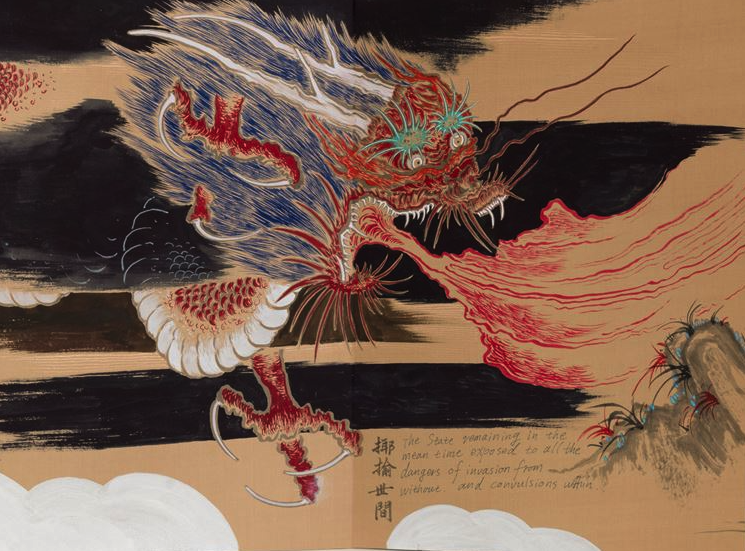 揶揄世間
The State remaining in the
mean time exposed to all the
dangers of invasion from
without. and convulsions within.